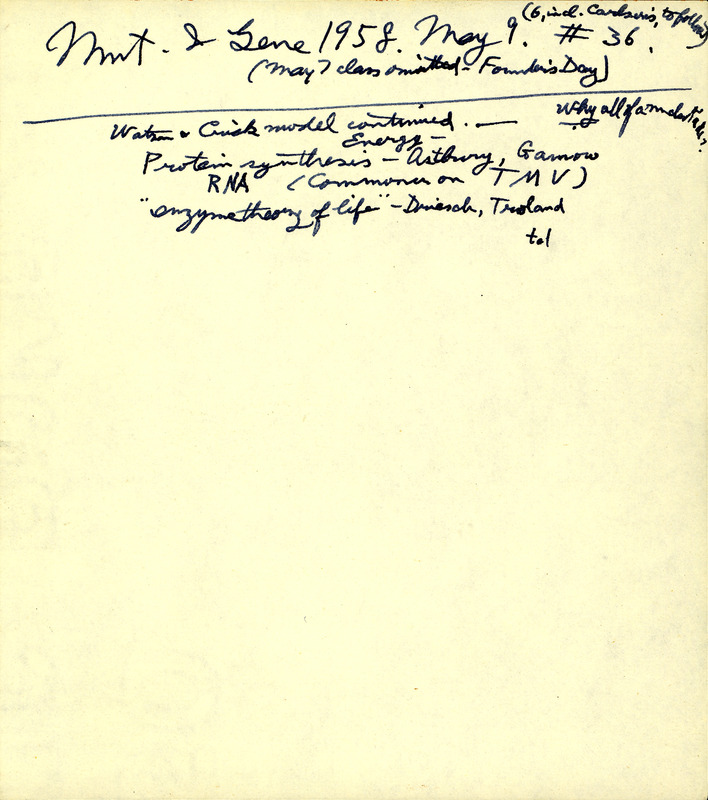 (6, incl. Carlson's, to follow)
Mut. & Gene 1958. May 9. # 36.
(May 7 class omitted - Founder's Day)
Why all of a molec
Watson & Crick model continued. —
Energy -
Protein synthesis - Astbury, Gamow
RNA (Commoner on TMV)
"enzyme theory of life" - Driesch, Troland